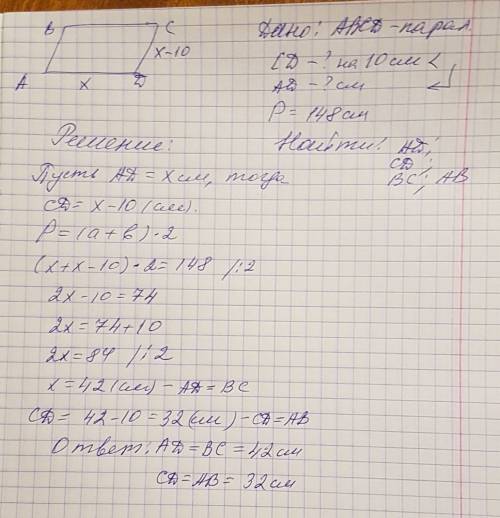 B C
x-10
A x D
Дано: ABCD - парал.
CD - ? на 10 см <
AD - ? см
P = 148 см
Решение:
Найти: AD;
CD;
BC; AB
Пусть AD = x см, тогда
CD = x-10 (см).
P = (a + b) · 2
(x+x-10) · 2 = 148 /:2
2x - 10 = 74
2x = 74 + 10
2x = 84 /:2
x = 42 (см) - AD = BC
CD = 42 - 10 = 32 (см) - CD = AB
Ответ: AD = BC = 42 см
CD = AB = 32 см